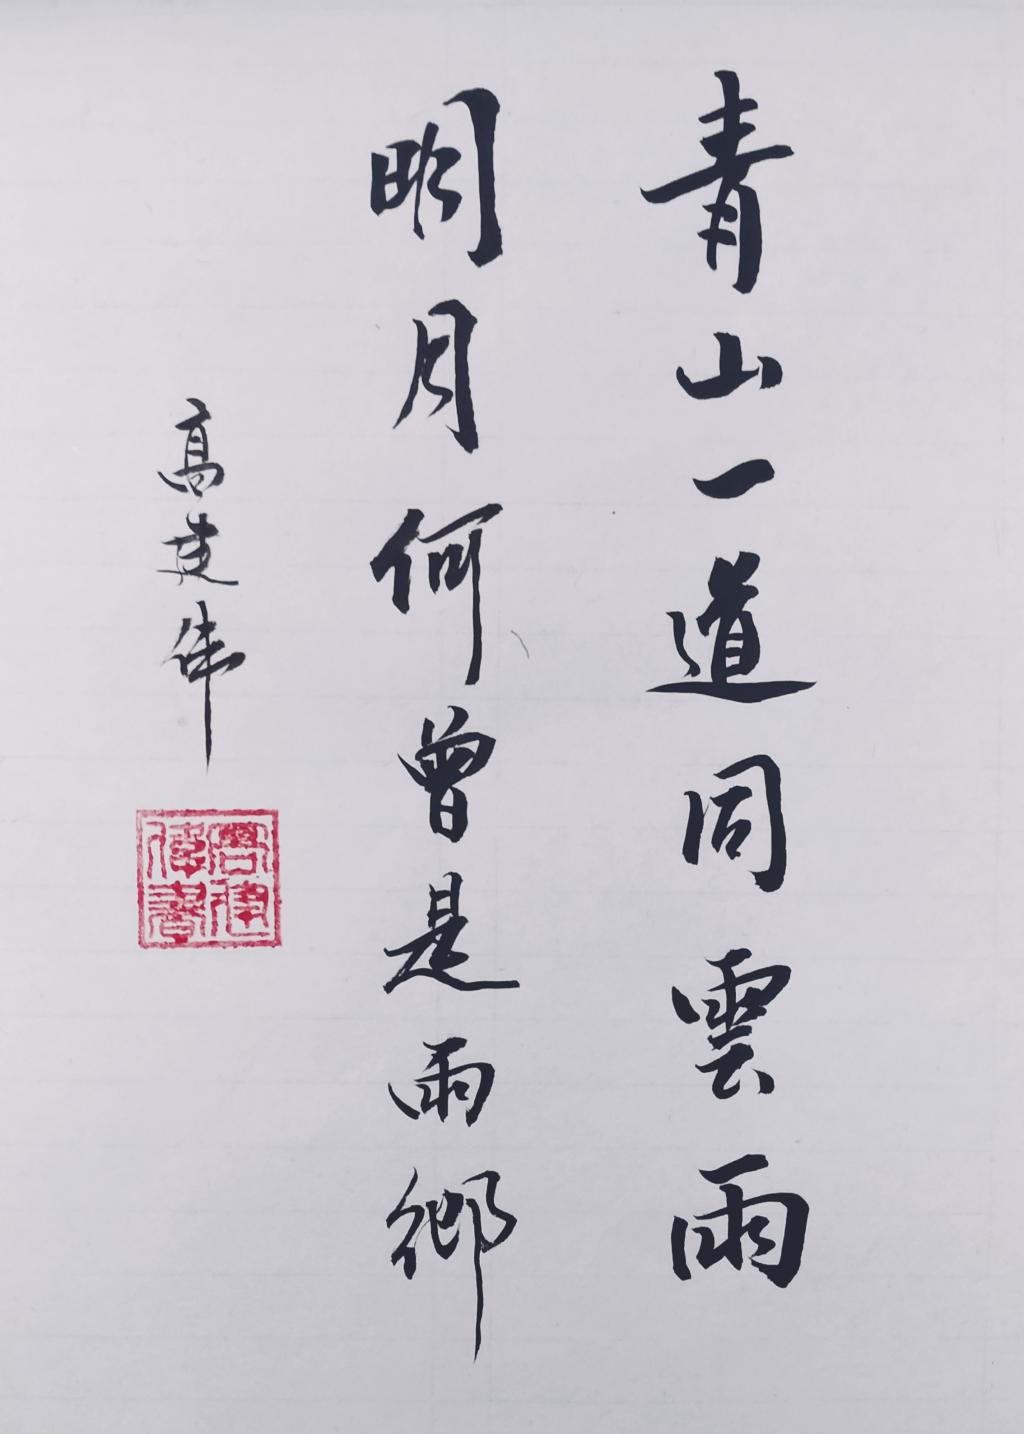 青山一道同雲雨
明月何曾是兩鄉
高建伟
高建偉書